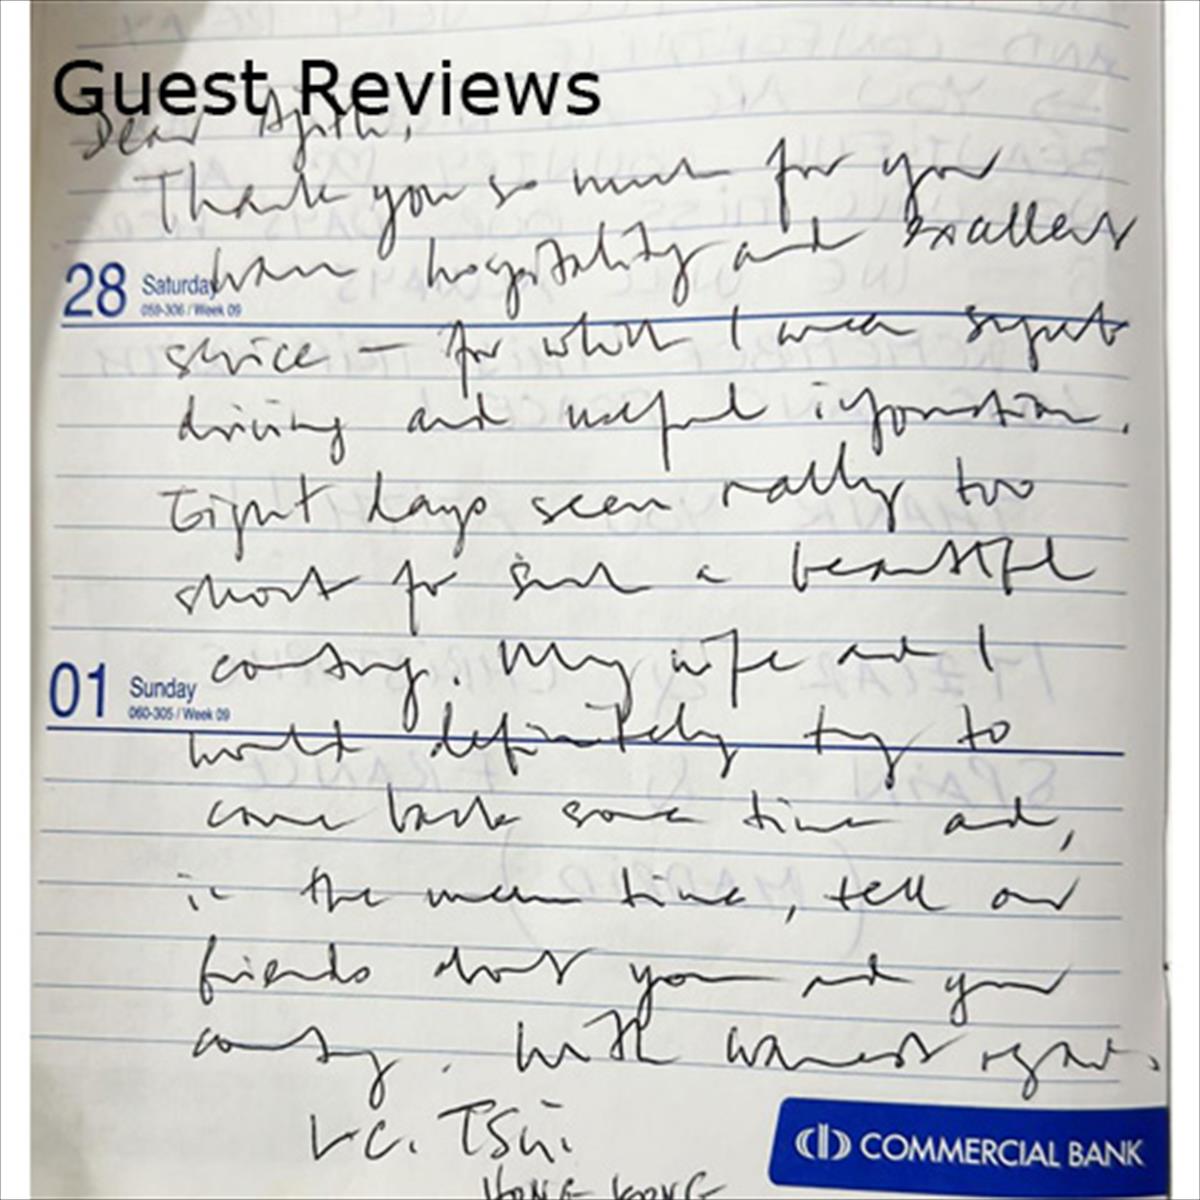 Guest Reviews
Dear Ajith,
Thank you so much for your
warm hospitality and excellent
28 Saturday
059-306 / Week 09
service – for which I mean superb
driving and useful information.
Eight days seem really too
short for such a beautiful
country. My wife and I
01 Sunday
060-305 / Week 09
would definitely try to
come back some time and,
in the mean time, tell our
friends about you and your
country. With warmest regards.
COMMERCIAL BANK
Tsui.
HONG KONG